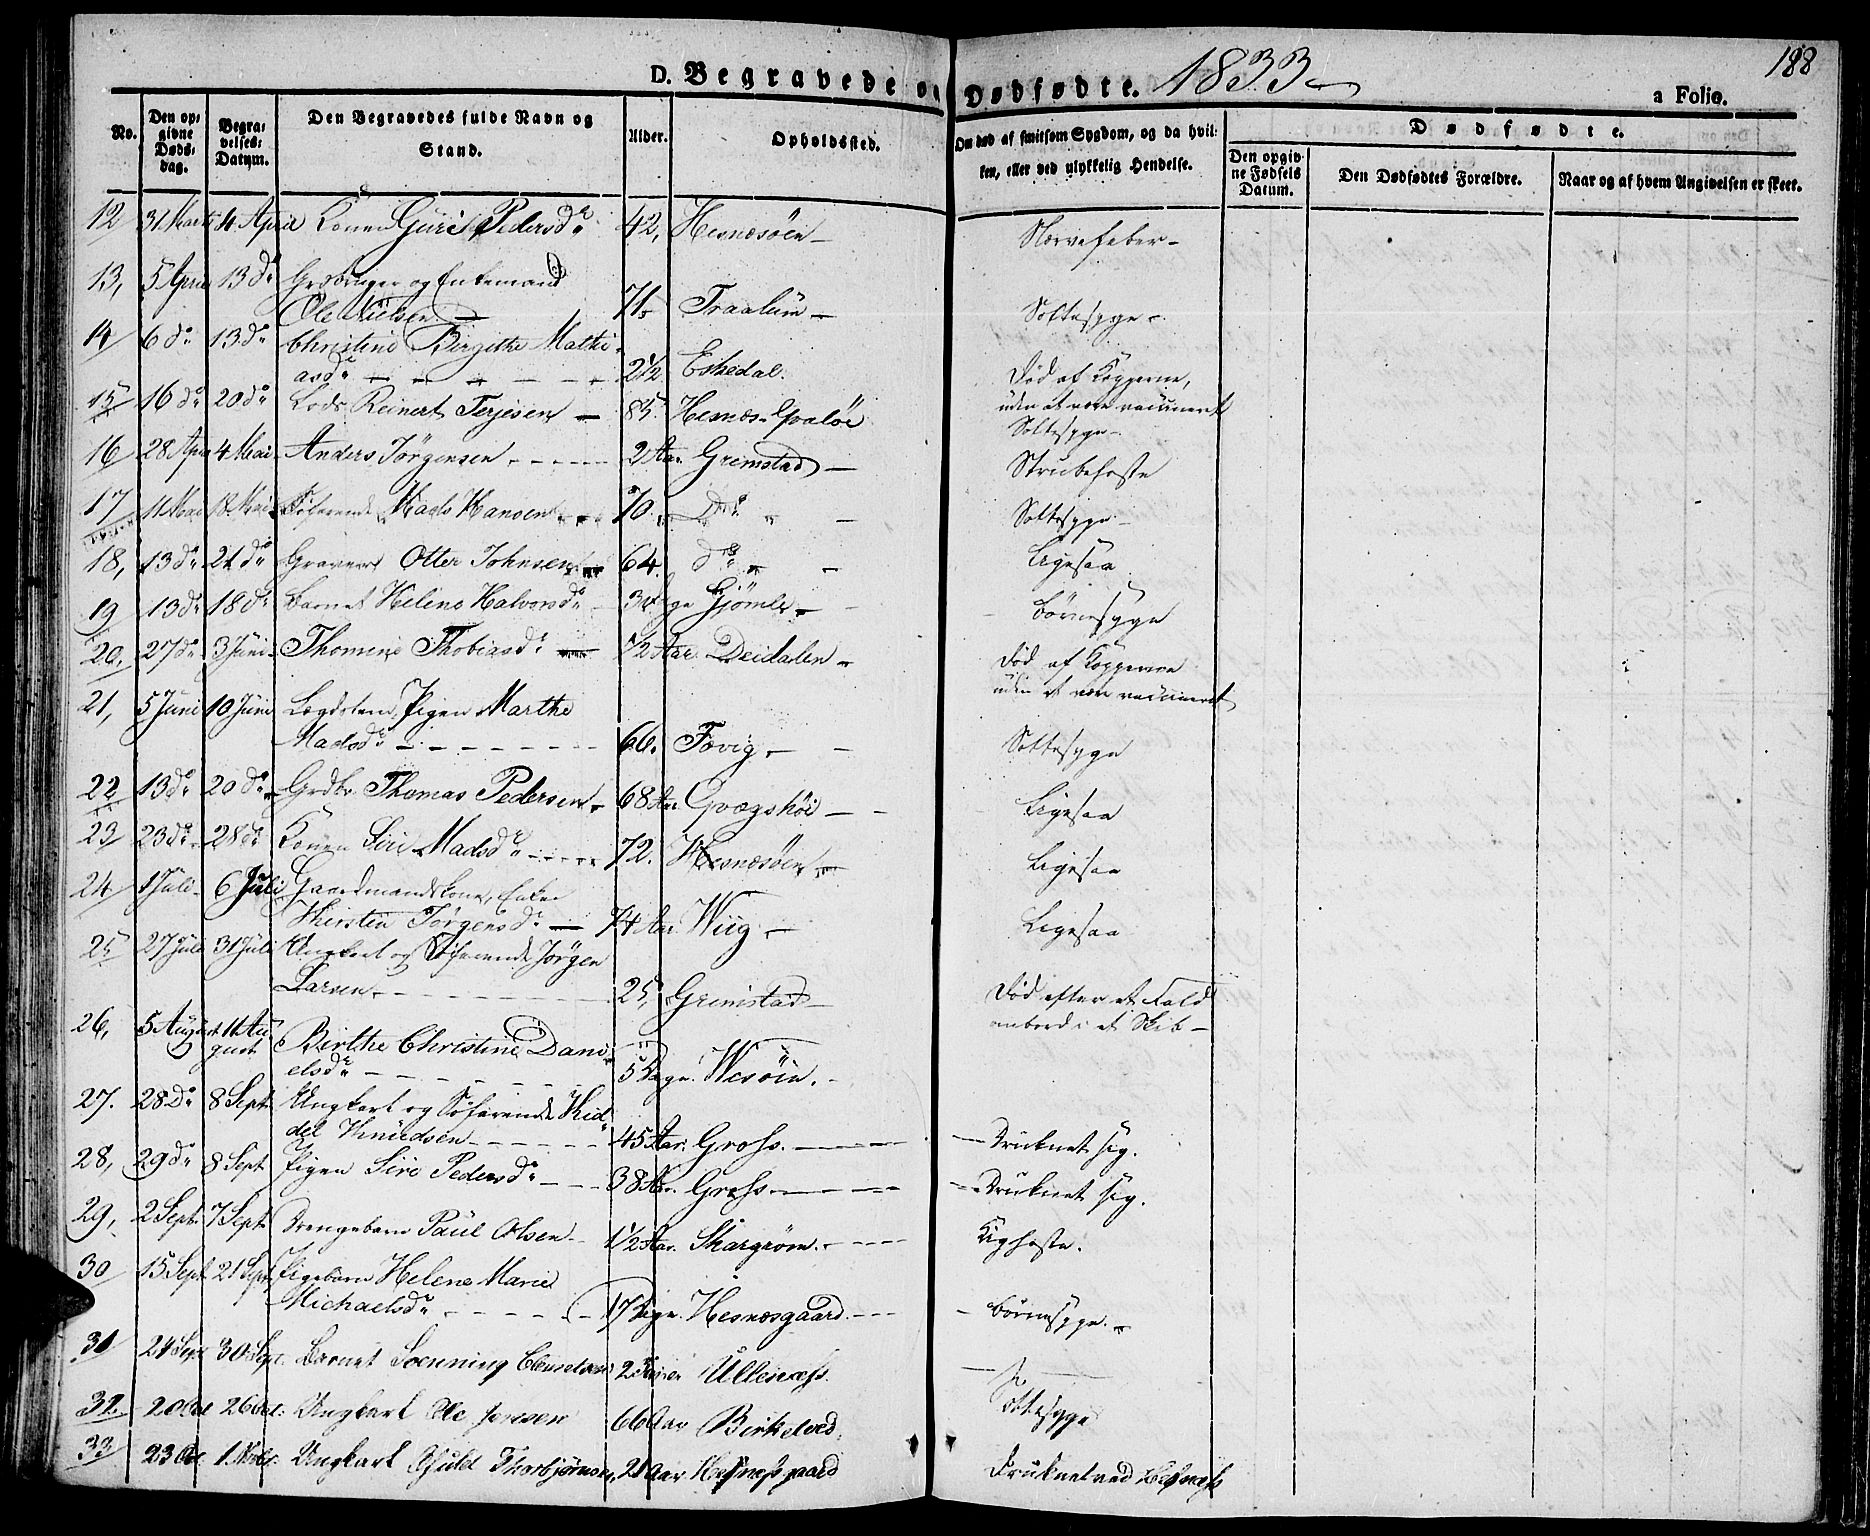 D. Begravede og Dødfødte. 1833 188
a Folio.
No. Den opgivne Dødsdag. Begravelses-Datum. Den Begravedes fulde Navn og Stand. Alder. Opholdssted. Om død af smitsom Sygdom, og da hvilken, eller ved ulykkelig Hendelse. Dødfødte. Den opgivne Fødsels Datum. Den Dødfødtes Forældre. Naar og af hvem Angivelsen er skeet.
12 31 Marts 4 April Konen Guri Pedersd. 42, Hesnæsöen Nervefeber
13, 5 April 13 do Grdbruger og Enkemand
Ole Nielsen 71 Traalum Sottesyge
14 6 do 13 do Christine Birgitte Mathi-
asd. 2 1/2 Eskedal. Død af Kopperne,
uden at være vaccineret
15 16 do 20 do Lods Reinert Terjesen 85. Hesnæs Qvaløe Sottesyge
16 28 Apr 4 Mai Anders Jörgensen 2 Aar. Grimstad Strubehoste
17 11 Mai 18 Mai Söfarende Mads Hansen 70 Do Sottesyge
18, 13 do 21 do Graver Otter Johnsen 64. do Ligesaa
19 13 do 18 do Barnet Helene Halvorsd. Gjömle Börnesyge
20, 27 do 3 Juni Thomine Thobiasd. Aar. Deidalen Død af Kopperne
uden at være vaccineret
21, 5 Juni 10 Juni Lægdslem Pigen Marthe
Madsd. 66. Fevig Sottesyge
22 13 do 20 do Grdbr. Thomas Pedersen 68 Aar. Qvægshöi Ligesaa
23 23 do 28 do Konen Siri Madsd. 72. Hesnæsöen Ligesaa
24 1 Juli 6 Juli Gaardmandskone, Enke
Kirsten Jörgensd. 74 Aar. Wiig Ligesaa
25 27 Juli 31 Juli Ungkarl og Söfarende Jörgen
Larsen 25, Grimstad Død efter et Fald
ombord i et Skib
26, 5 August 11 Au-
gust Birthe Christine Dani-
elsd. 5 Dage. Wesöen.
27. 28 Do 8 Sept. Ungkarl og Söfarende Kid-
del Knudsen 45 Aar. Gross. Druknet sig.
28, 29 do 8 Sept Pigen Siri Pedersd. 38 Aar. Gross. Druknet sig.
29, 2 Sept. 7 Sept Drengebarn Paul Olsen 1 1/2 Aar. Skargrøm. Kighoste.
30 15 Sept. 21 Sept. Pigebarn Helene Marie
Michaelsd. 17 Dage. Hesnæsgaard. Börnesyge.
31 24 Sept 30 Sept. Barnet Soenning 2 Ullenæss.
32. 20 Oct 26 Oct. Ungkarl Ole Jensen 66 Aar Birketved. Sottesyge
33 23 Oct 1. Novbr. Ungkarl Thorbjørnsen, 21 Aar Hesnessgaard Druknet ved Hesness